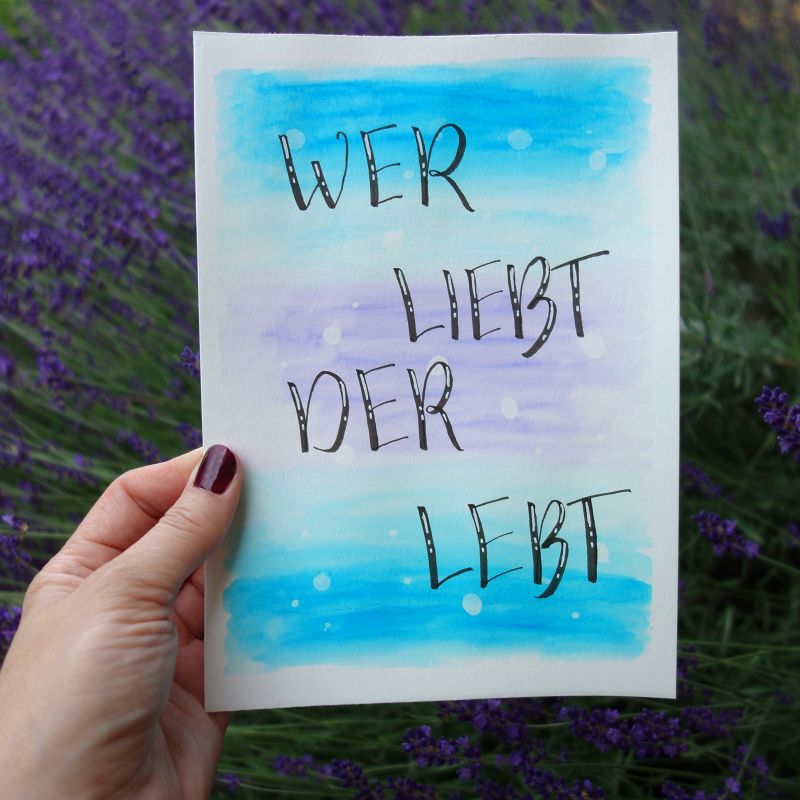 WER
LIEBT
DER
LEBT